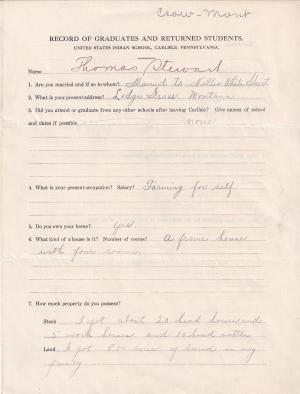 Crow-Mont
RECORD OF GRADUATES AND RETURNED STUDENTS.
UNITED STATES INDIAN SCHOOL, CARLISLE, PENNSYLVANIA.
Name Thomas Stewart
1. Are you married and if so to whom? Married to Mollie White Shirt
2. What is your present address? Lodge Grass, Montana
3. Did you attend or graduate from any other schools after leaving Carlisle? Give names of school
and dates if possible. none
4. What is your present occupation? Salary? Farming for self
5. Do you own your home? yes.
6. What kind of a house is it? Number of rooms? A frame house
with four rooms.
7. How much property do you possess?
Stock I got about 20 head horses and
5 work horses and 10 head cattle
Land I got 800 acres of land in my
family